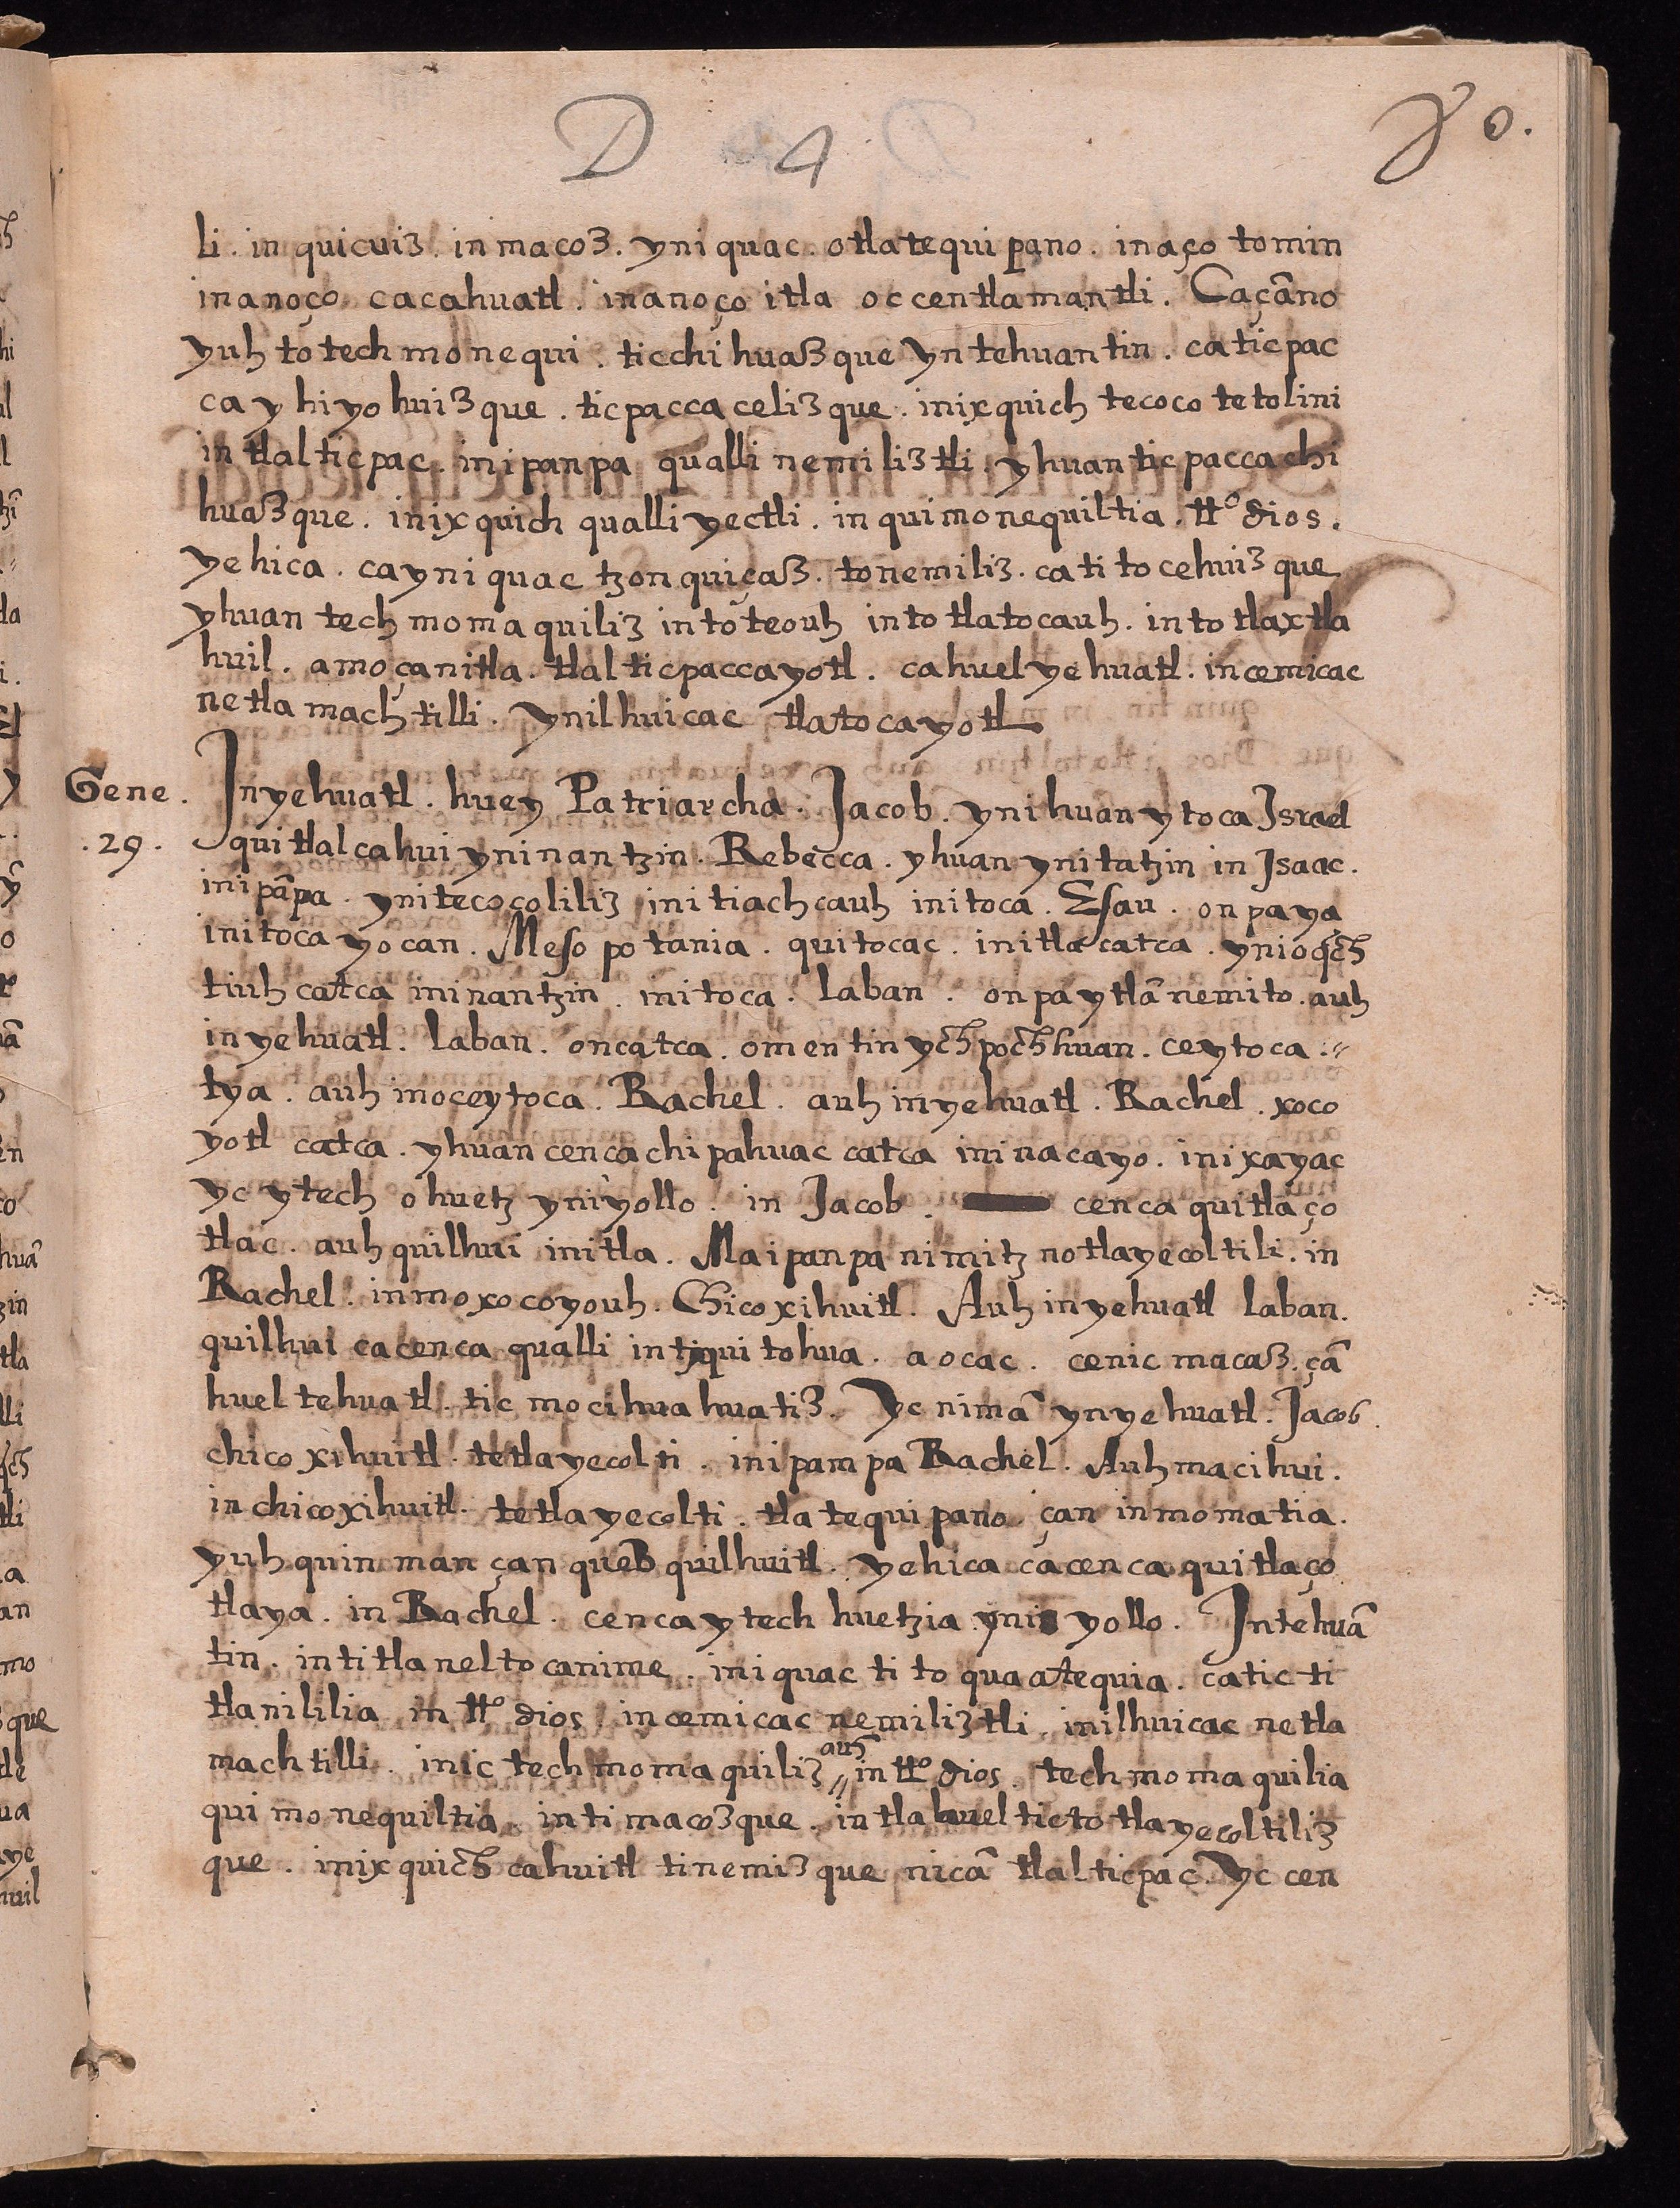 D 4 80.
li. in quicuiz. in macoz. yniquac. otlatequipano. in aço tomin
inanoço cacahuatl. inanoço itla occentlamantli. Caçãno
yuh totech monequi. ticchihuazque yn tehuantin. ca ticpac
ca yhiyohuizque. ticpaccacelizque. inixquich tecoco tetolini
in tlalticpac. inipanpa qualli nemiliztli. yhuan ticpaccachi
huazque. inixquich qualli yectli. in quimonequiltia. ttº dios.
yehica. ca yniquac tzonquiçaz. tonemiliz. ca titocehuizque
yhuan techmomaquiliz in toteouh in totlatocauh. in totlaxtla
huil. amo çan itla. tlalticpaccayotl. ca huel yehuatl. in cemicac
netlamachtilli. yn ilhuicac tlatocayotl
Gene. Jn yehuatl. huey Patriarcha. Jacob. yn ihuan ytoca Israel
.29. quitlalcahui yn inantzin. Rebecca. yhuan yn itatzin in Isaac.
inipãpa. yn itecocoliliz in itiachcauh in itoca. Esau. onpa ya
in itocayocan. Mesopotania. quitocac. in itla catca. yn ioqch
tiuh catca in inantzin. in itoca. laban. onpa ytlã nemito. auh
in yehuatl. laban. oncatca. omentin ychpochhuan. ce ytoca.
lya. auh in oce ytoca. Rachel. auh in yehuatl. Rachel. xoco
yotl catca. yhuan cenca chipahuac catca in inacayo. in ixayac
yc ytech ohuetz yn iyollo. in Jacob. cenca quitlaço
tlac. auh quilhui in itla. Ma ipanpa nimitznotlayecoltili. in
Rachel. in moxocoyouh. Chicoxihuitl. Auh in yehuatl laban.
quilhui ca cenca qualli in tiquitohua. aocac. cenicmacaz. çã
huel tehuatl. ticmocihuahuatiz. Yc nimã yn yehuatl. Jacob.
chicoxihuitl. tetlayecolti. inipampa Rachel. Auh macihui.
in chicoxihuitl. tetlayecolti. tlatequipano. çan inmomatia.
yuhquinman çan quezquilhuitl. yehica ca cenca quitlaço
tlaya. in Rachel. cenca ytech huetzia yni yollo. In tehuã
tin. in titlaneltocanime. iniquac titoquaatequia. ca ticti
tlanililia in ttº dios, in cemicac nemiliztli. in ilhuicac netla
machtilli. inic techmomaquiliz auh in ttº dios. techmomaquilia
quimonequiltia. in timacozque. intla huel tictotlayecoltiliz
que. inixquich cahuitl tinemizque nicã tlalticpac. Yc cen